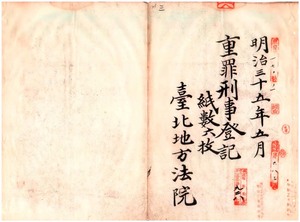 明治三十五年五月
重罪刑事登記
紙数六枚
臺北地方法院